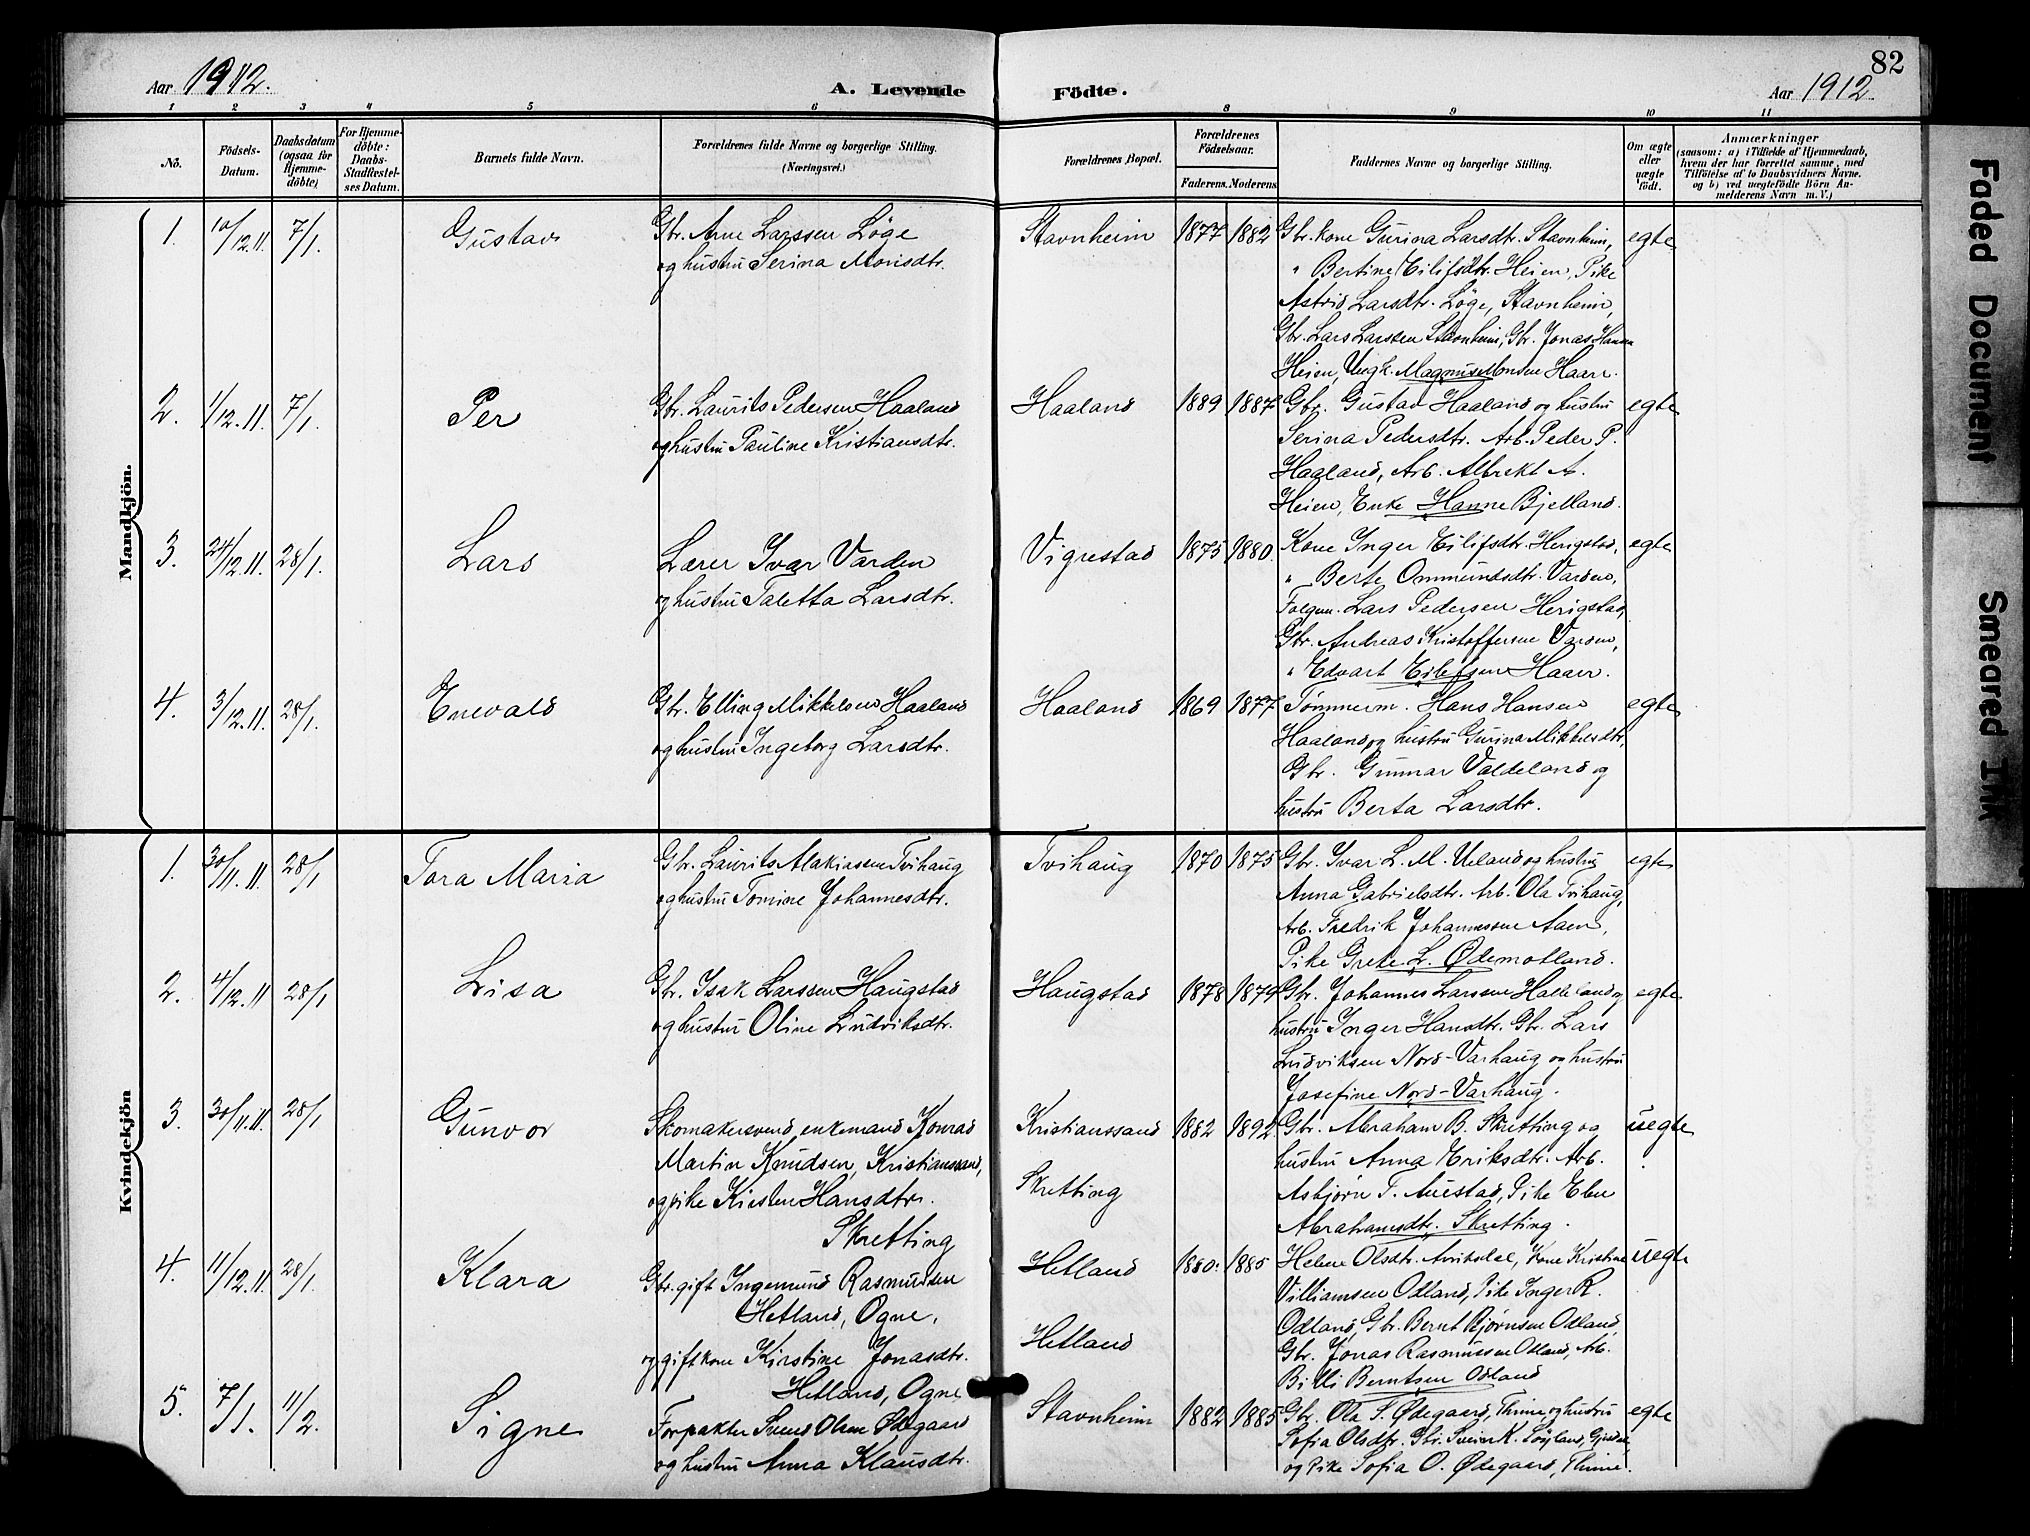 82
Aar 1912.
A. Levende Födte.
Aar 1912.
1 2 3 4 5 6 8 9 10 11
No.
Födsels-Datum.
Daabsdatum (ogsaa for Hjemmedöbte)
For Hjemmedöbte: Daabs-Stadfæstelses Datum.
Barnets fulde Navn.
Forældrenes fulde Navne og borgerlige Stilling.
(Næringsvei.)
Forældrenes Bopæl.
Forældrenes Födselsaar.
Faderens. Moderens
Faddernes Navne og borgerlige Stilling.
Om ægte eller uægte født.
Anmærkninger
(saasom: a) i Tilfælde af Hjemmedaab, hvem der har forrettet samme, med Tilföielse af to Daabsvidners Navne, og b) ved uægtefödte Börn Anmelderens Navn m. V.)
Mandkjön.
1. 10/12.11. 7/1. Gustav
Gbr. Arne Larssen Löge
og hustru Serina Monsdtr.
Stavnheim 1877 1882
Gbr.kone Gurina Larsdtr. Stavnheim, egte
" Bertine Eilifsdtr. Heien, Pike
Astrid Larsdtr. Löge, Stavnheim,
Gbr. Lars Larssen Stavnheim, Gbr. Jonas Hansen
Heien, Ungk. Magnus Monsen Haarr.
2. 1/12.11. 7/1. Per
Gbr. Laurits Pedersen Haaland
og hustru Pauline Kristiansdtr.
Haaland 1889 1887
Gbr. Gustav Haaland og hustru egte
Serina Pedersdtr. Arb. Peder P.
Haaland, Arb. Albrekt A.
Heien, Enke Hanne Bjelland.
3. 24/12.11. 28/1. Lars
Lærer Ivar Varden
og hustru Taletta Larsdtr.
Vigrestad 1875 1880.
Kone Inger Eilifsdtr. Herigstad, egte
" Berte Ommundsdtr. Varden,
Folgm. Lars Pedersen Herigstad,
Gbr. Andreas Kristoffersen Varden,
" Edvart Eilefsen Haarr.
4. 3/12.11. 28/1. Enevald
Gbr. Elling Mikkelsen Haaland
og hustru Ingeborg Larsdtr.
Haaland 1869 1877
Tømmerm. Hans Hansen egte
Haaland og hustru Gurina Mikkelsdtr,
Gbr. Gunnar Valdeland og
hustru Berta Larsdtr.
Kvindekjön
1. 30/11.11. 28/1 Tora Maria
Gbr. Laurits Malakiasen Tvihaug
og hustru Tomine Johannesdtr.
Tvihaug 1870 1875
Gbr. Ivar L. M. Ueland og hustru egte
Anna Gabrielsdtr. Arb. Ola Tvihaug,
Arb. Fredrik Johannessen Aaen,
Pike Grete L. Ødemotland.
2. 4/12.11 28/1 Lisa
Gbr. Isak Larssen Haugstad
og hustru Oline Ludviksdtr.
Haugstad 1878 1879
Gbr. Johannes Larssen Halleland og egte
hustru Inger Hansdtr. Gbr. Lars
Ludviksen Nord-Varhaug og hustru
Josefine Nord-Varhaug.
3. 30/11.11. 28/1 Gunvor
Skomakersvend enkemand Konrad
Martin Knudsen, Kristianssand,
og pike Kirsten Hansdtr.
Skretting
Kristianssand 1882 1892
Skretting
Gbr. Abraham B. Skretting og uegte
hustru Anna Eriksdtr. Arb.
Asbjørn T. Auestad, Pike Elen
Abrahamsdtr. Skretting.
4. 11/12.11. 28/1. Klara
Gbr. gift Ingemund Rasmussen
Hetland, Ogne,
og gift kone Kirstine Jonasdtr.
Hetland, Ogne
Hetland 1880. 1885
Hetland
Helene Olsdtr. Avitsdal, Kone Kristine uegte
Villiamsen Odland, Pike Inger R.
Odland, Gbr. Bernt Bjørnsen Odland,
Gbr. Jonas Rasmussen Odland, Arb.
Berntsen Odland
5. 7/1. 11/2. Signe
Forpakter Svend Olsen Ødegaard
og hustru Anna Klausdtr.
Stavnheim 1882 1885
Gbr. Ola S. Ødegaard, Thime og hustru egte
Sofia Olsdtr. Gbr. Svein K.
og Pike Sofia O. Ødegaard, Thime.
Faded Document
Smeared Ink